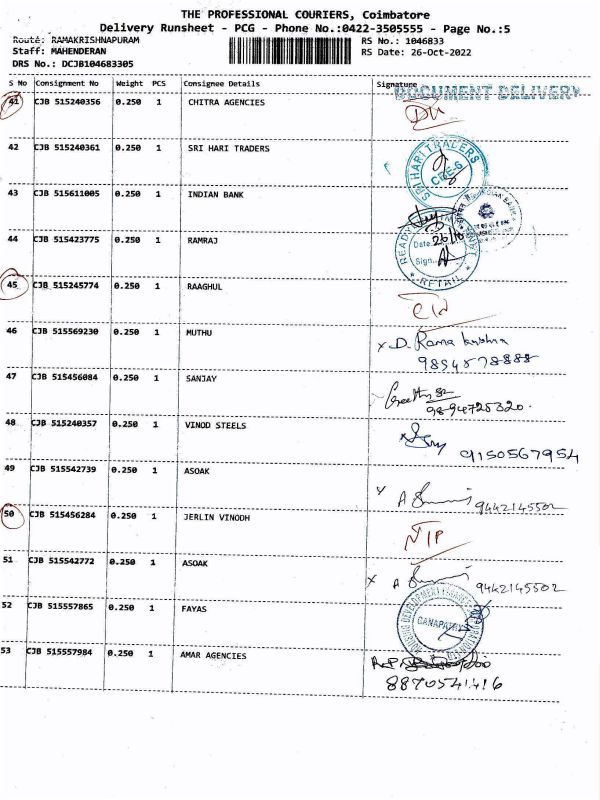 THE PROFESSIONAL COURIERS, Coimbatore
Delivery Runsheet - PCG - Phone No.:0422-3505555 - Page No.:5
Route: RAMAKRISHNAPURAM
RS No.: 1046833
Staff: MAHENDERAN
RS Date: 26-Oct-2022
DRS No.: DCJB104683305
S No Consignment No Weight PCS Consignee Details Signature
DOCUMENT DELIVERY
41 CJB 515240356 0.250 1 CHITRA AGENCIES
42 CJB 515240361 0.250 1 SRI HARI TRADERS
SRI HARI TRADERS
CBE-6
43 CJB 515611005 0.250 1 INDIAN BANK
44 CJB 515423775 0.250 1 RAMRAJ
READY
Date: 26/10
Sign.
RETAIL
45 CJB 515245774 0.250 1 RAAGHUL
46 CJB 515569230 0.250 1 MUTHU
x D. Rama krishna
9894578888
47 CJB 515456084 0.250 1 SANJAY
9894725320.
48 CJB 515240357 0.250 1 VINOD STEELS
9150567954
49 CJB 515542739 0.250 1 ASOAK
9442145502
50 CJB 515456284 0.250 1 JERLIN VINODH
51 CJB 515542772 0.250 1 ASOAK
9442145502
52 CJB 515557865 0.250 1 FAYAS
GANAPATHY
53 CJB 515557984 0.250 1 AMAR AGENCIES
8870541416